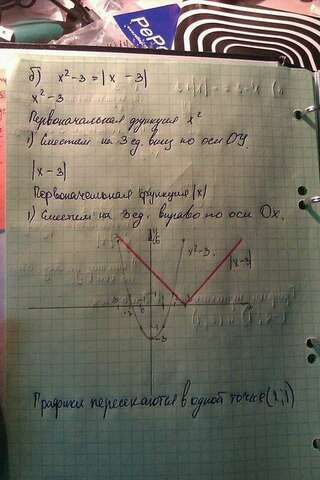 PePe
б) x²-3 = |x-3|
x²-3
Первоначальная функция x²
1) Сместим на 3 ед. вниз по оси OY
|x-3|
Первоначальная функция |x|
1) Сместим на 3 ед. вправо по оси Ox.
x²-3
|x-3|
-3
Графики пересекаются в одной точке (1;1)